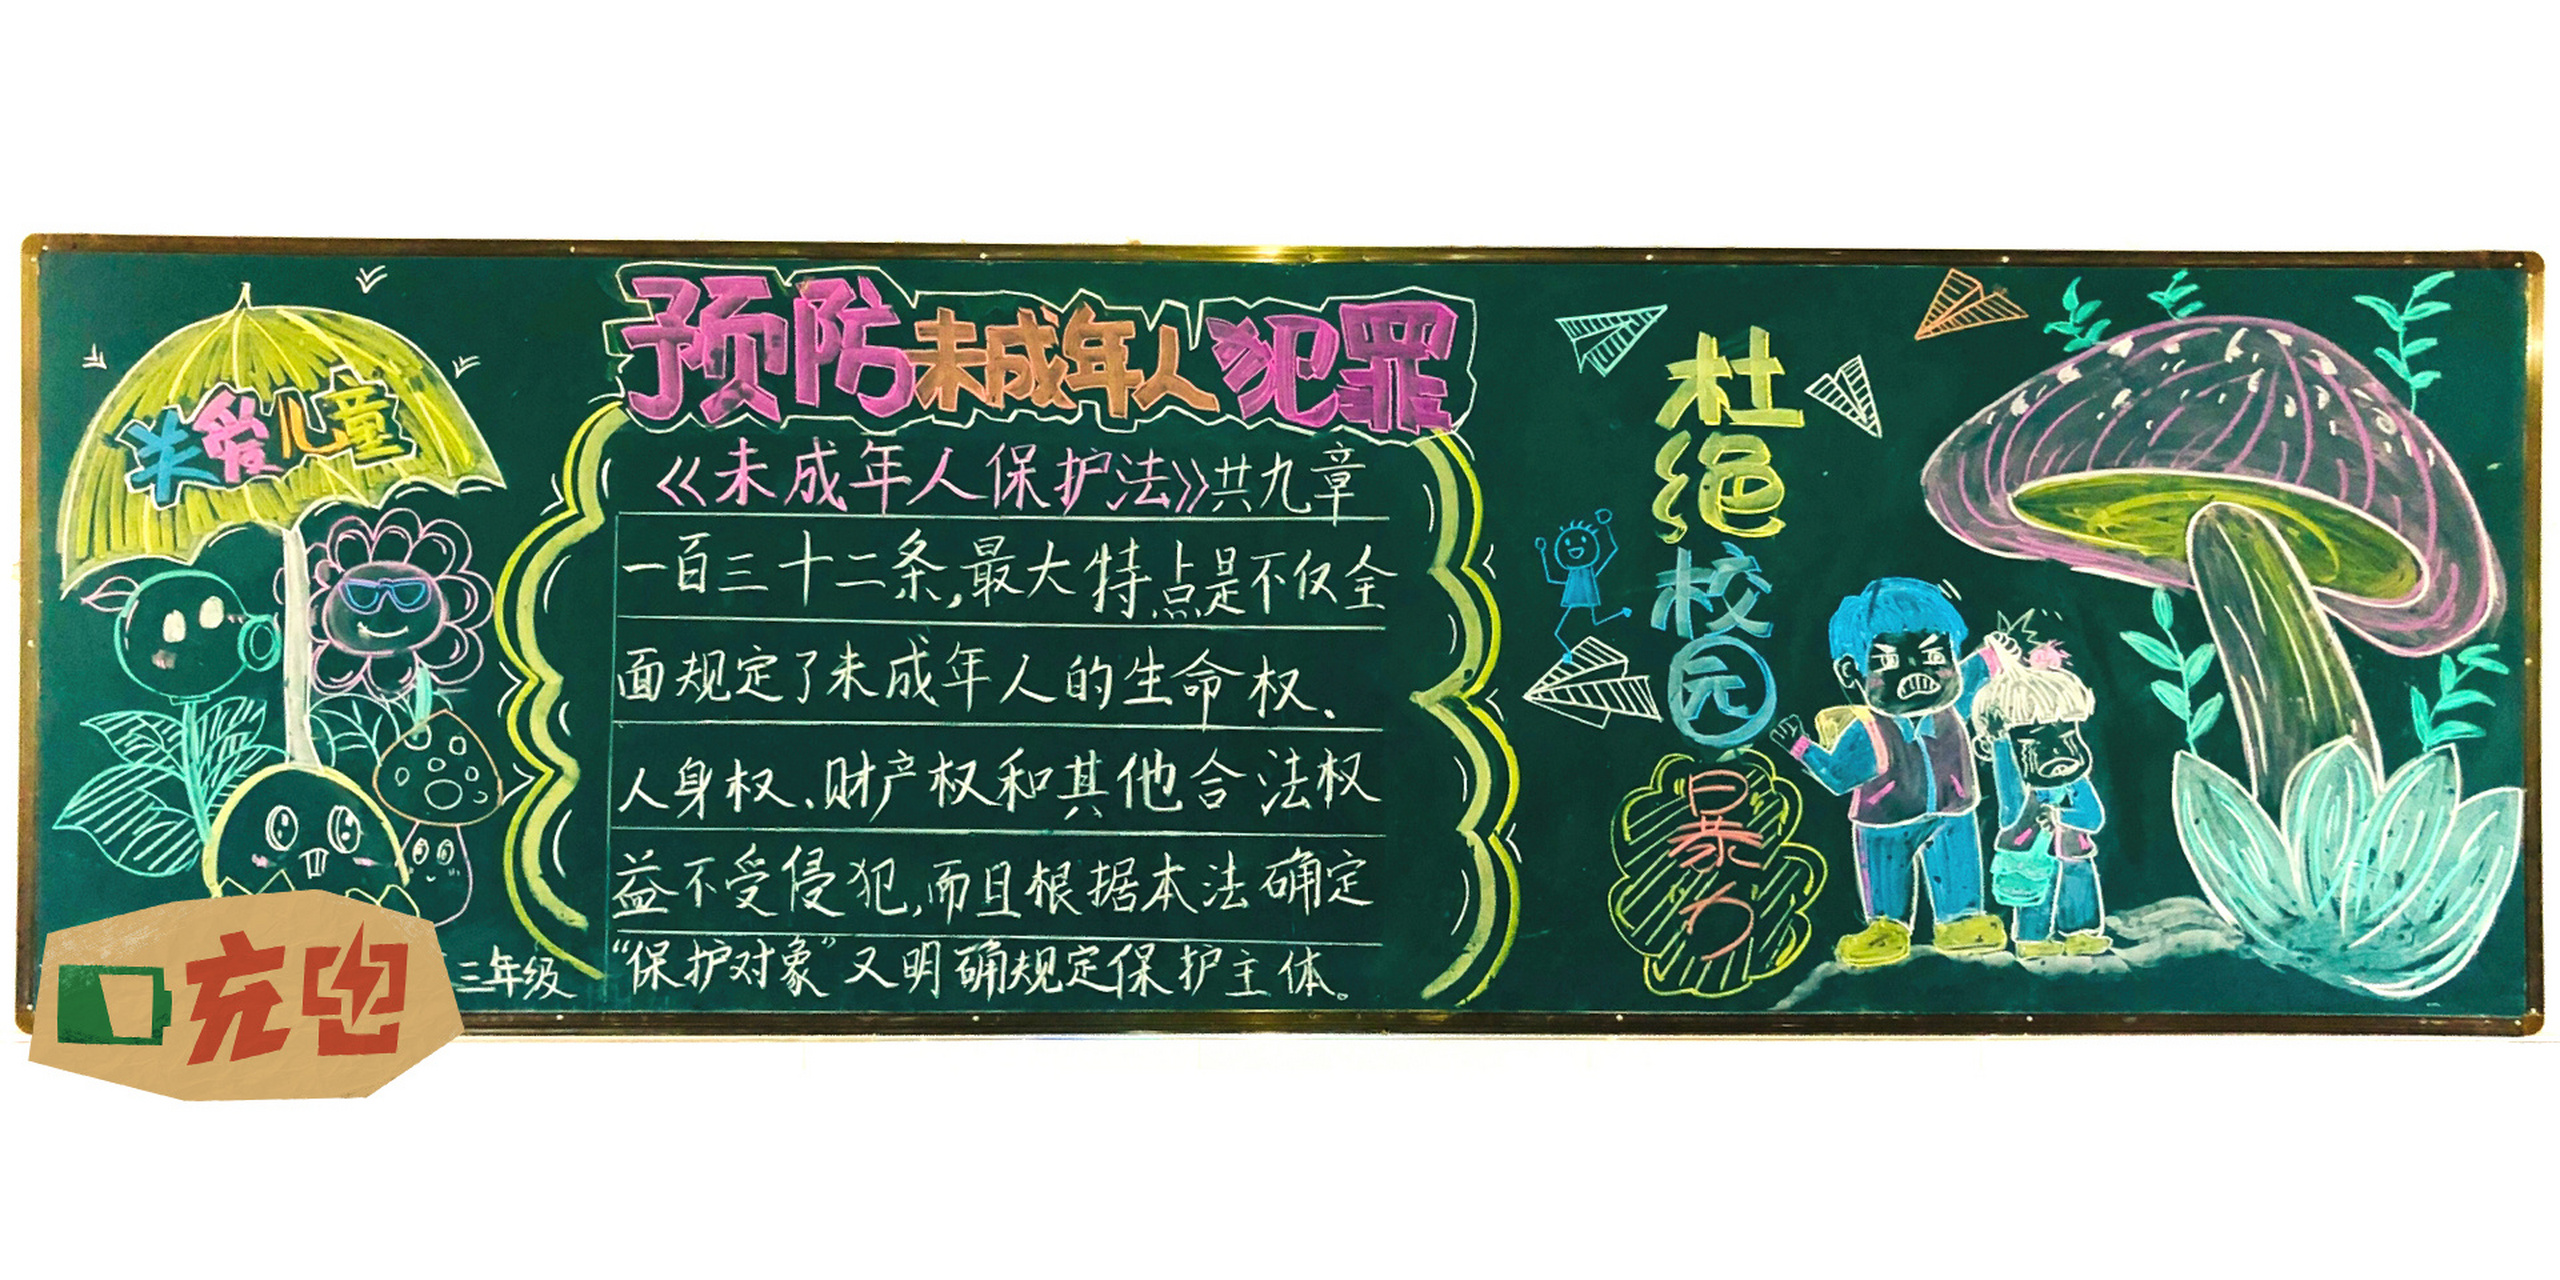 关爱儿童
预防未成年人犯罪
《未成年人保护法》共九章
一百三十二条,最大特点是不仅全
面规定了未成年人的生命权、
人身权、财产权和其他合法权
益不受侵犯,而且根据本法确定
“保护对象”又明确规定保护主体。
三年级
杜绝
校园
暴力
充电